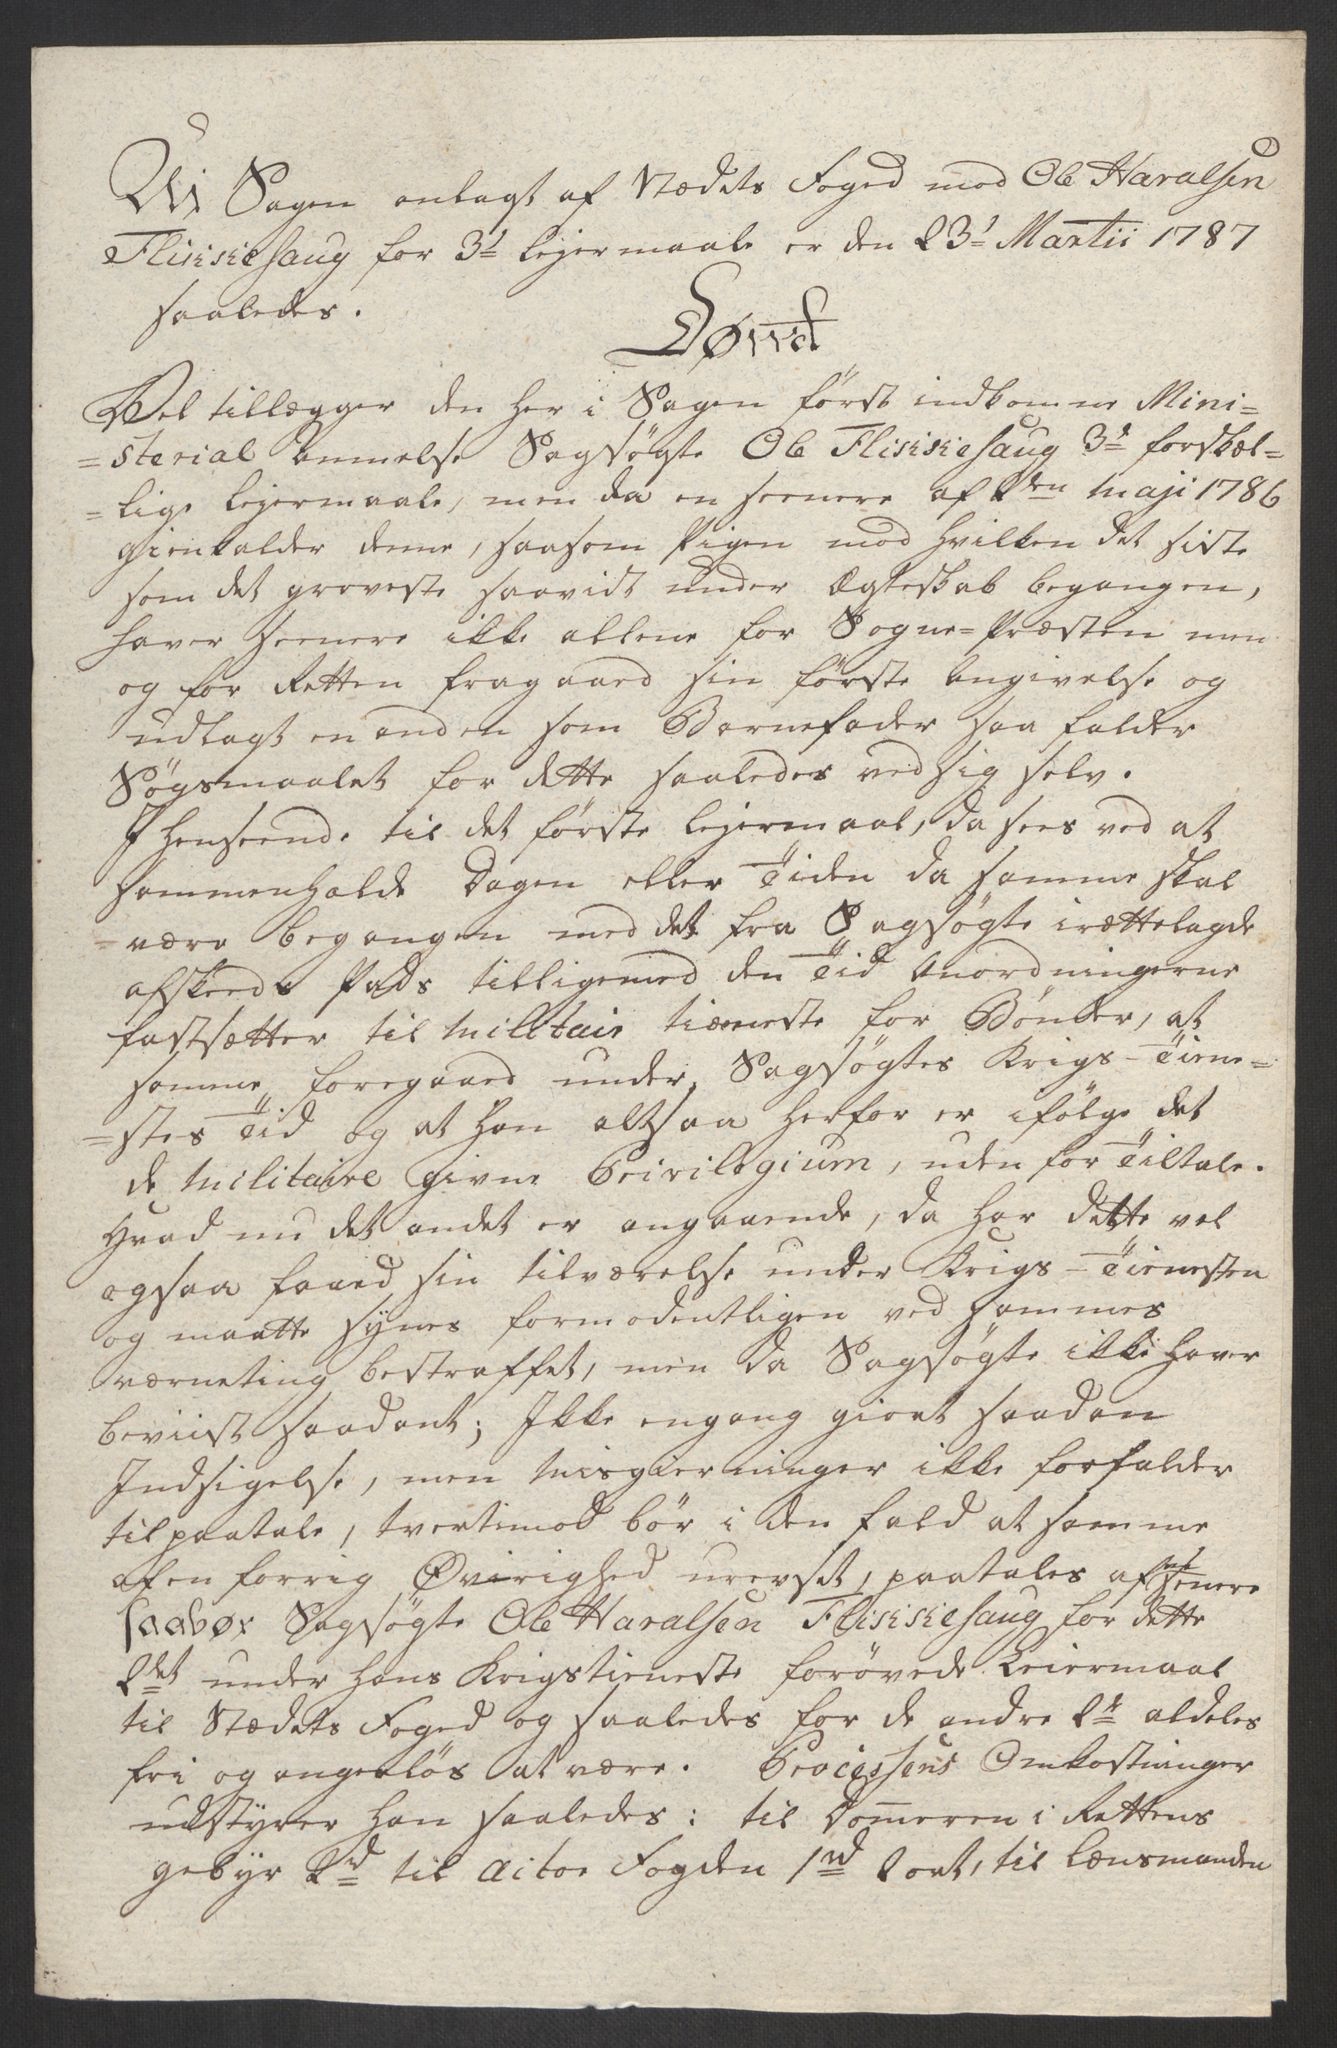 Udi Sagen anlagt af Stædets Foged mod Ole Haralsen
Fliskiehaug for 3de lejermaale er den 23de Martii 1787
saaledes.
Dømt
Vel tillægger den her i Sagen først indkomne Mini=
=sterial anmelse Sagsøgte Ole Fliskiehaug 3de forskæl=
=lige lejermaale, men da en seenere af 2den Maji 1786
gienkalder denne, saasom Pigen mod hvilken det siste
som det groveste saavidt under Ægteskab begangen,
haver seenere ikke allene for Sogne=Præsten men
og for Retten fragaaed sin første angivelse og
udlagt en anden som Barnefader saa falder
Søgsmaalet for dette saaledes ved sig selv.
I henseende til det første lejermaal, da sees ved at
sammenholde Dagen eller Tiden da samme skal
=være begangen med det fra Sagsøgte irættelagde
afskeeds Pads tilligemed den Tid Anordningerne
fastsætter til Militair tieneste for Bønder, at
samme foregaaed under Sagsøgtes Krigs-Tiene=
=stes Tid og at han altsaa herfor er ifølge det
de Militaire givne Privilegium, uden for Tiltale.
Hvad nu det andet er angaaende, da har dette vel
ogsaa faaed sin tilværelse under Krigs-Tienesten
og maatte synes formodentligen ved sammes
værneting bestraffet, men da Sagsøgte ikke haver
beviist saadant; Ikke engang giort saadan
Indsigelse, men Misgierninger ikke forfalder
til paatale, tvertimod bør i den fald at samme
af en forrig Øvrighed urevset, paatales af senere
saa bør Sagsøgte Ole Haralsen Fliskiehaug for dette
2det under hans Krigstieneste forøvede Leiermaal
til Stædets Foged og saaledes for de andre 2de aldeles
fri og angerløs at være. Processens Omkostninger
udstyrer han saaledes: til Dommeren i Rettens
gebyr 2rd til Actor Fogden 1rd 2 ort, til Lænsmanden